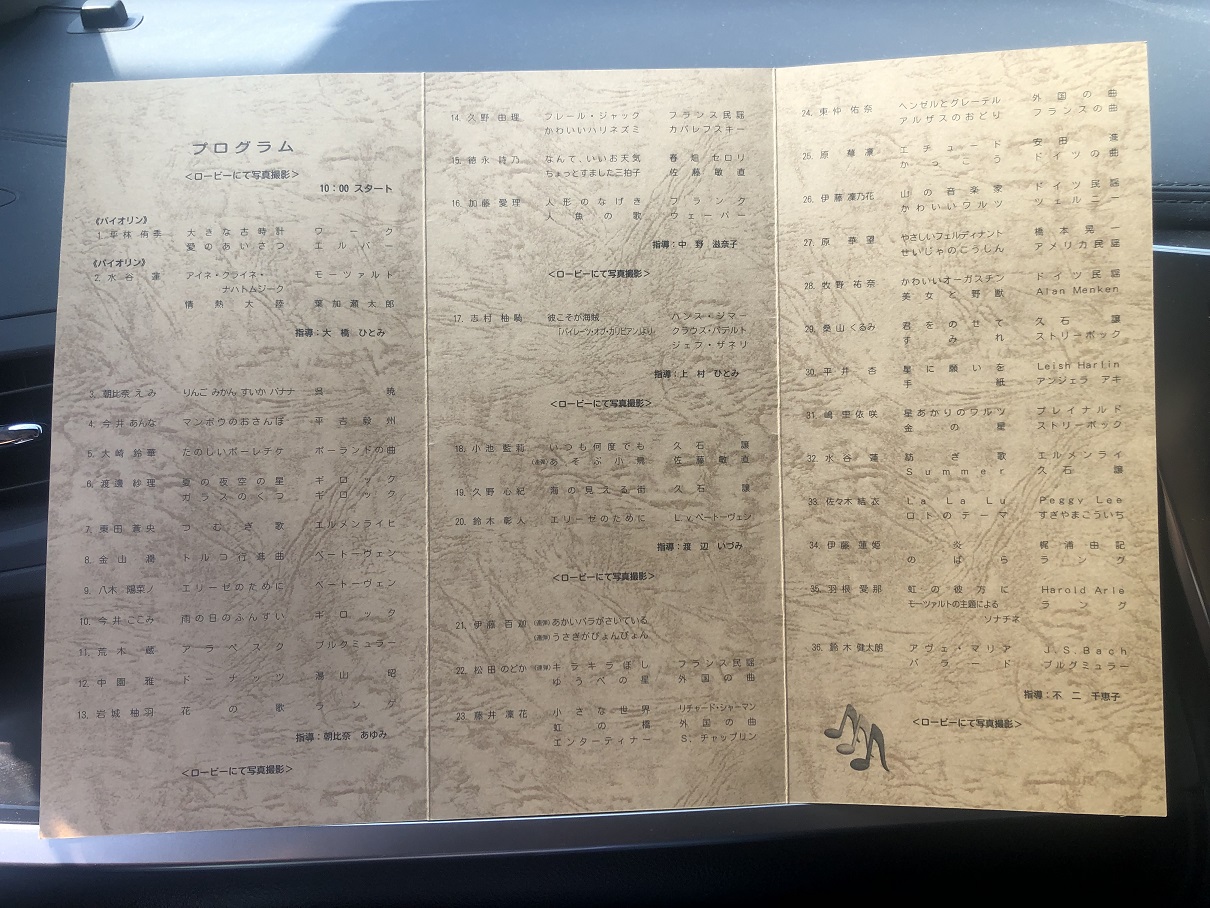 プログラム
<ロービーにて写真撮影>
10:00 スタート
《バイオリン》
1. 平林 侑季 大きな古時計 ワーク
愛のあいさつ エルバー
《バイオリン》
2. 水谷 蓮 アイネ・クライネ・ モーツァルト
ナハトムジーク
情熱大陸 葉加瀬太郎
指導：大橋 ひとみ
3. 朝比奈 えみ りんご みかん すいか バナナ 呉 暁
4. 今井 あんな マンボウのおさんぽ 平吉毅州
5. 大崎 鈴華 たのしいポーレチケ ポーランドの曲
6. 渡邊 紗理 夏の夜空の星 ギロック
ガラスのくつ ギロック
7. 東田 蒼央 つむぎ歌 エルメンライヒ
8. 金山 トルコ行進曲 ベートーヴェン
9. 八木 陽菜ノ エリーゼのために ベートーヴェン
10. 今井 ここみ 雨の日のふんすい ギロック
11. 荒木 蔵 アラベスク ブルクミュラー
12. 中園 雅 ドーナッツ 湯山 昭
13. 岩城 柚羽 花の歌 ランゲ
指導：朝比奈 あゆみ
<ロービーにて写真撮影>
14. 久野 由理 フレール・ジャック フランス民謡
かわいいハリネズミ カバレフスキー
15. 徳永 詩乃 なんて、いいお天気 春畑 セロリ
ちょっとすました三拍子 佐藤 敏直
16. 加藤 愛理 人形のなげき フランク
人魚の歌 ウェーバー
指導：中野 滋奈子
<ロービーにて写真撮影>
17. 志村 柚騎 彼こそが海賊 ハンス・ジマー
「パイレーツ・オブ・カリビアン」より クラウス・バデルト
ジェフ・ザネリ
指導：上村 ひとみ
<ロービーにて写真撮影>
18. 小池 藍莉 いつも何度でも 久石 譲
(連弾)あそぶ小鳩 佐藤 敏直
19. 久野 心紀 海の見える街 久石 譲
20. 鈴木 彰人 エリーゼのために L.v.ベートーヴェン
指導：渡辺 いづみ
<ロービーにて写真撮影>
21. 伊藤 百 (連弾)あかいバラがさいている
(連弾)うさぎがぴょんぴょん
22. 松田 のどか (連弾)キラキラぼし フランス民謡
ゆうべの星 外国の曲
23. 藤井 凜花 小さな世界 リチャード・シャーマン
虹の橋 外国の曲
エンターティナー S. チャップリン
24. 東仲 佑奈 ヘンゼルとグレーテル 外国の曲
アルザスのおどり フランスの曲
25. 原 華凛 エチュード 安田 進
かっこう ドイツの曲
26. 伊藤 凜乃花 山の音楽家 ドイツ民謡
かわいいワルツ ツェルニー
27. 原 華望 やさしいフェルディナント 橋本晃一
せいじゃのこうしん アメリカ民謡
28. 牧野 祐奈 かわいいオーガスチン ドイツ民謡
美女と野獣 Alan Menken
29. 桑山 くるみ 君をのせて 久石 譲
すみれ ストリーボック
30. 平井 杏 星に願いを Leish Harlin
手紙 アンジェラ アキ
31. 嶋里 依咲 星あかりのワルツ ブレイナルド
金の星 ストリーボック
32. 水谷 蓮 紡ぎ歌 エルメンライ
Summer 久石 譲
33. 佐々木 結衣 La La Lu Peggy Lee
ロトのテーマ すぎやまこういち
34. 伊藤 蓮姫 炎 梶浦由記
のばら ラング
35. 羽根 愛那 虹の彼方に Harold Arle
モーツァルトの主題による ラング
ソナチネ
36. 鈴木 健太朗 アヴェ・マリア J.S.Bach
バラード ブルグミュラー
指導：不二 千恵子
<ロービーにて写真撮影>